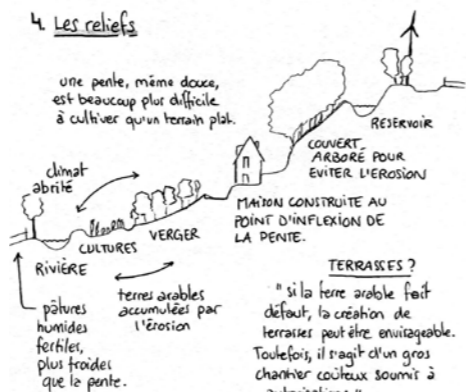 4. Les reliefs
une pente, même douce,
est beaucoup plus difficile
à cultiver qu'un terrain plat.
climat
abrité
RESERVOIR
COUVERT
ARBORÉ POUR
EVITER L'EROSION
MAISON CONSTRUITE AU
POINT D'INFLEXION DE
LA PENTE.
VERGER
CULTURES
RIVIÈRE
terres arables
accumulées par
l'érosion
pâtures
humides
fertiles,
plus froides
que la pente.
TERRASSES ?
" si la terre arable fait
défaut, la création de
terrasses peut être envisageable.
Toutefois, il s'agit d'un gros
chantier coûteux soumis à